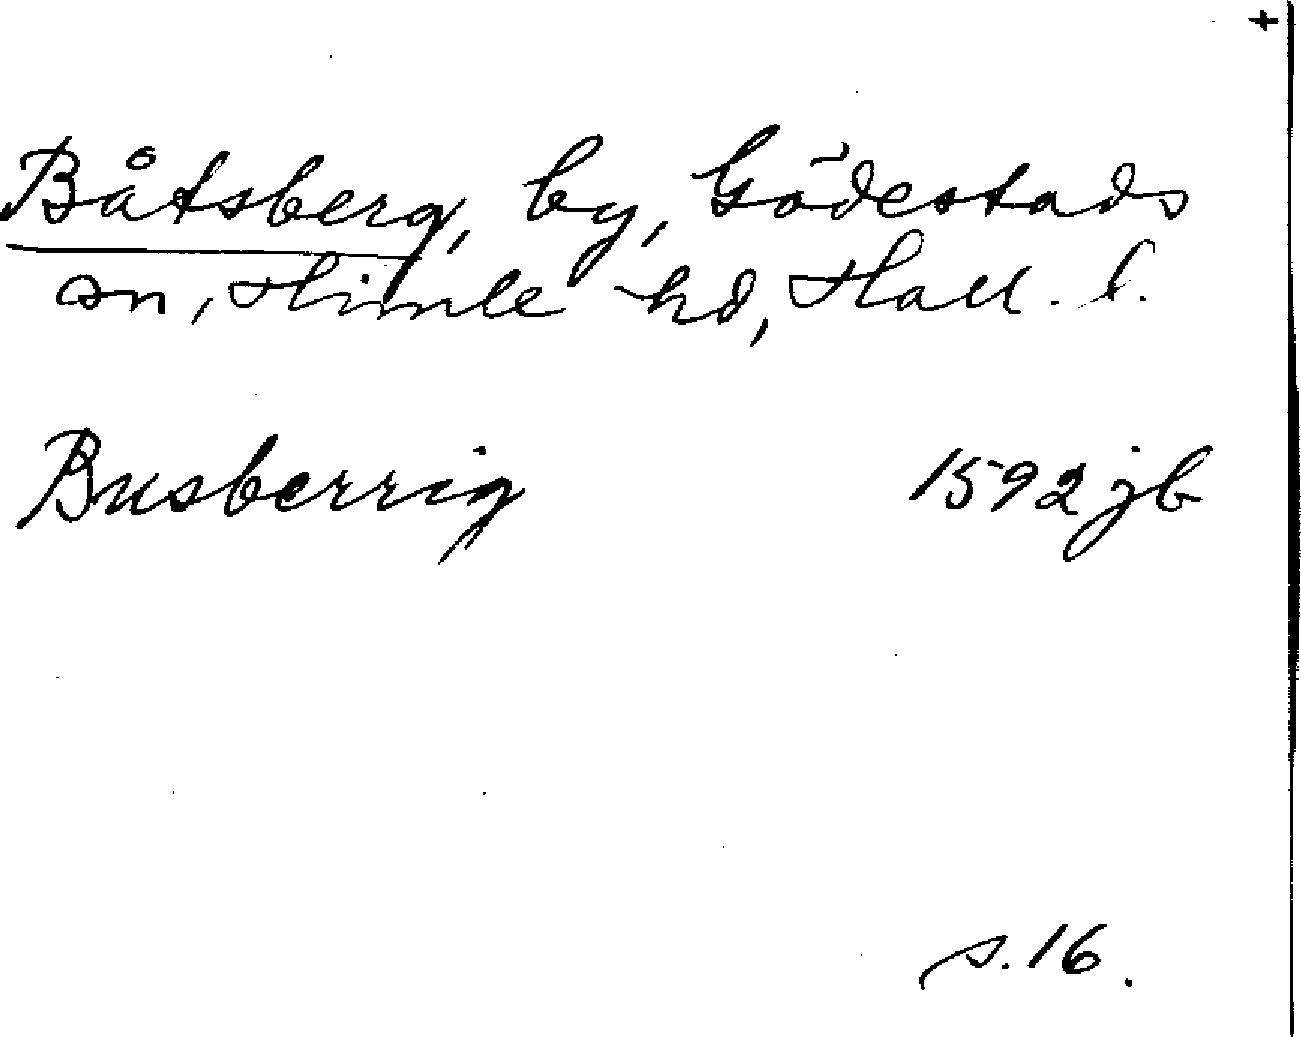 +
Båtsberg, by, Gödestads
sn, Himle hd, Hall. l.
Busberrig 1592 jb
s. 16.